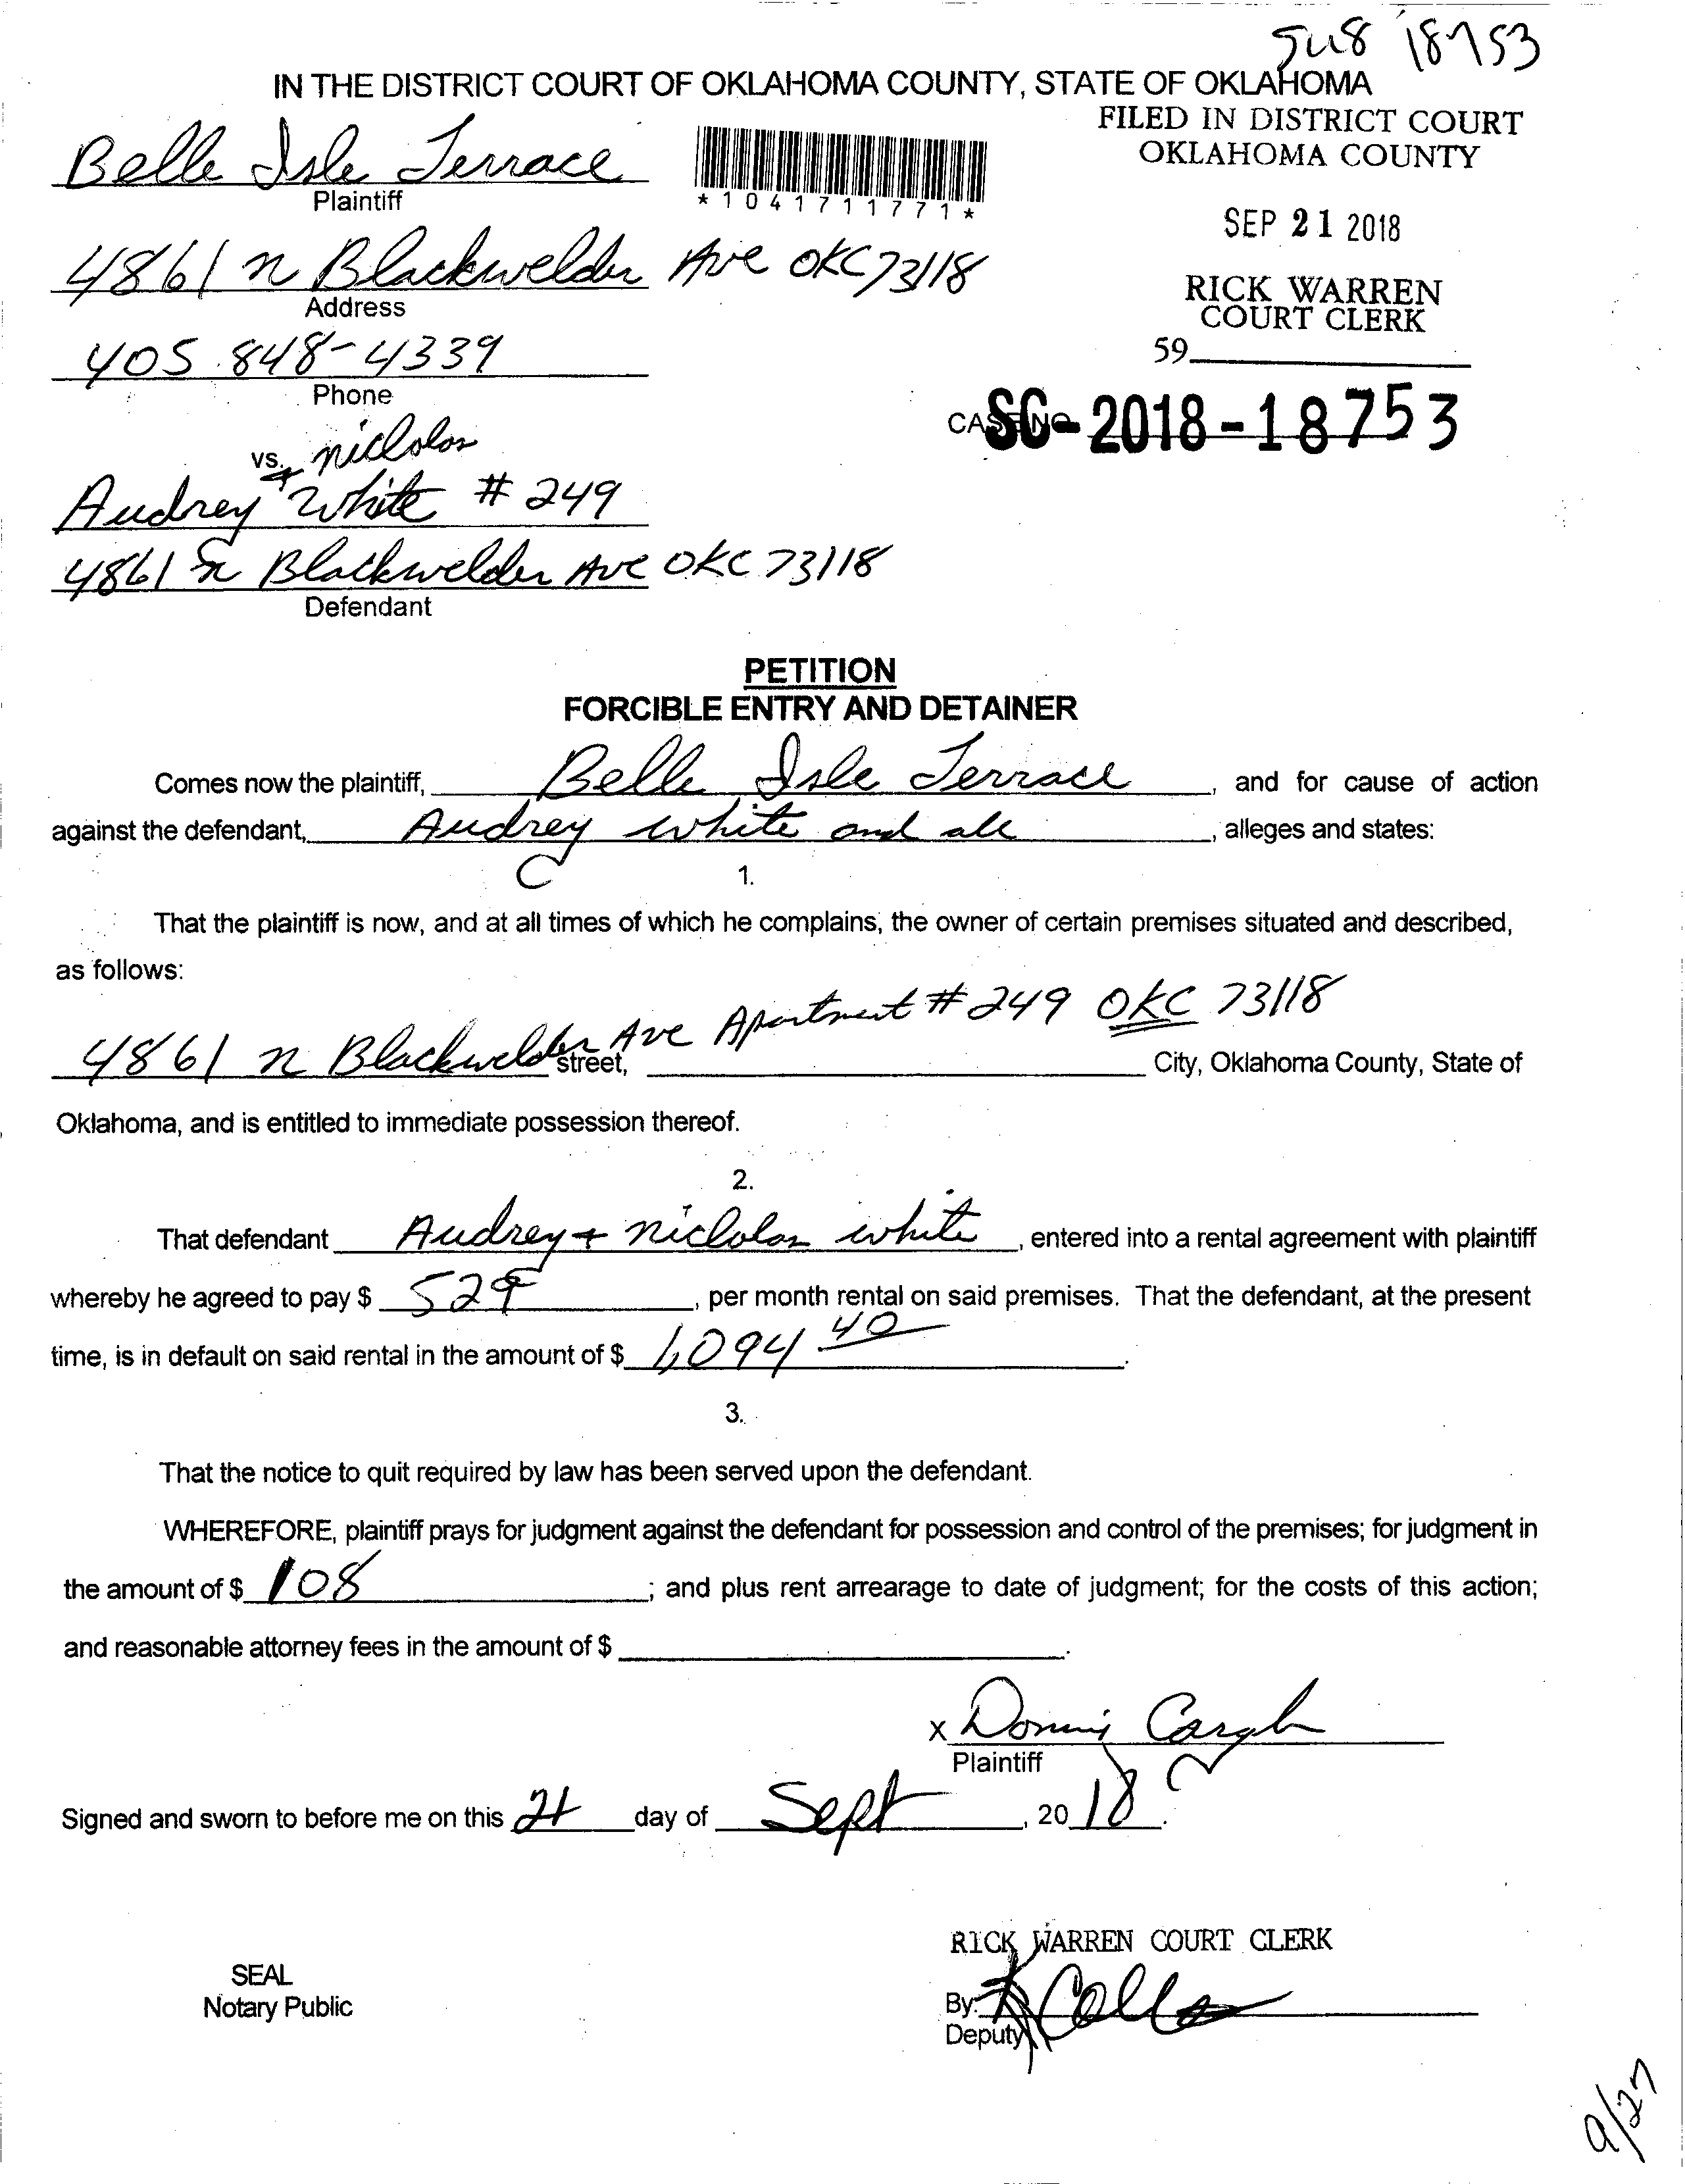 IN THE DISTRICT COURT OF OKLAHOMA COUNTY, STATE OF OKLAHOMA
18753
FILED IN DISTRICT COURT
OKLAHOMA COUNTY
SEP 21 2018
RICK WARREN
COURT CLERK
59
CASE NO. SC-2018-18753
Belle Isle Terrace
Plaintiff
*1041711771*
4861 n Blackwelder Ave OKC 73118
Address
405 848-4339
Phone
vs. + niclolas
Audrey White # 249
4861 n Blackwelder Ave OKC 73118
Defendant
PETITION
FORCIBLE ENTRY AND DETAINER
Comes now the plaintiff, Belle Isle Terrace, and for cause of action
against the defendant, Audrey white and all, alleges and states:
1.
That the plaintiff is now, and at all times of which he complains, the owner of certain premises situated and described,
as follows:
4861 n Blackwelder Ave Apartment # 249 OKC 73118
street, City, Oklahoma County, State of
Oklahoma, and is entitled to immediate possession thereof.
2.
That defendant Audrey + niclolas white, entered into a rental agreement with plaintiff
whereby he agreed to pay $ 529, per month rental on said premises. That the defendant, at the present
time, is in default on said rental in the amount of $ 1,094 40.
3.
That the notice to quit required by law has been served upon the defendant.
WHEREFORE, plaintiff prays for judgment against the defendant for possession and control of the premises; for judgment in
the amount of $ 108; and plus rent arrearage to date of judgment; for the costs of this action;
and reasonable attorney fees in the amount of $
x
Plaintiff
Signed and sworn to before me on this 21 day of Sept, 20 18.
RICK WARREN COURT CLERK
SEAL
Notary Public
By:
Deputy
9/27